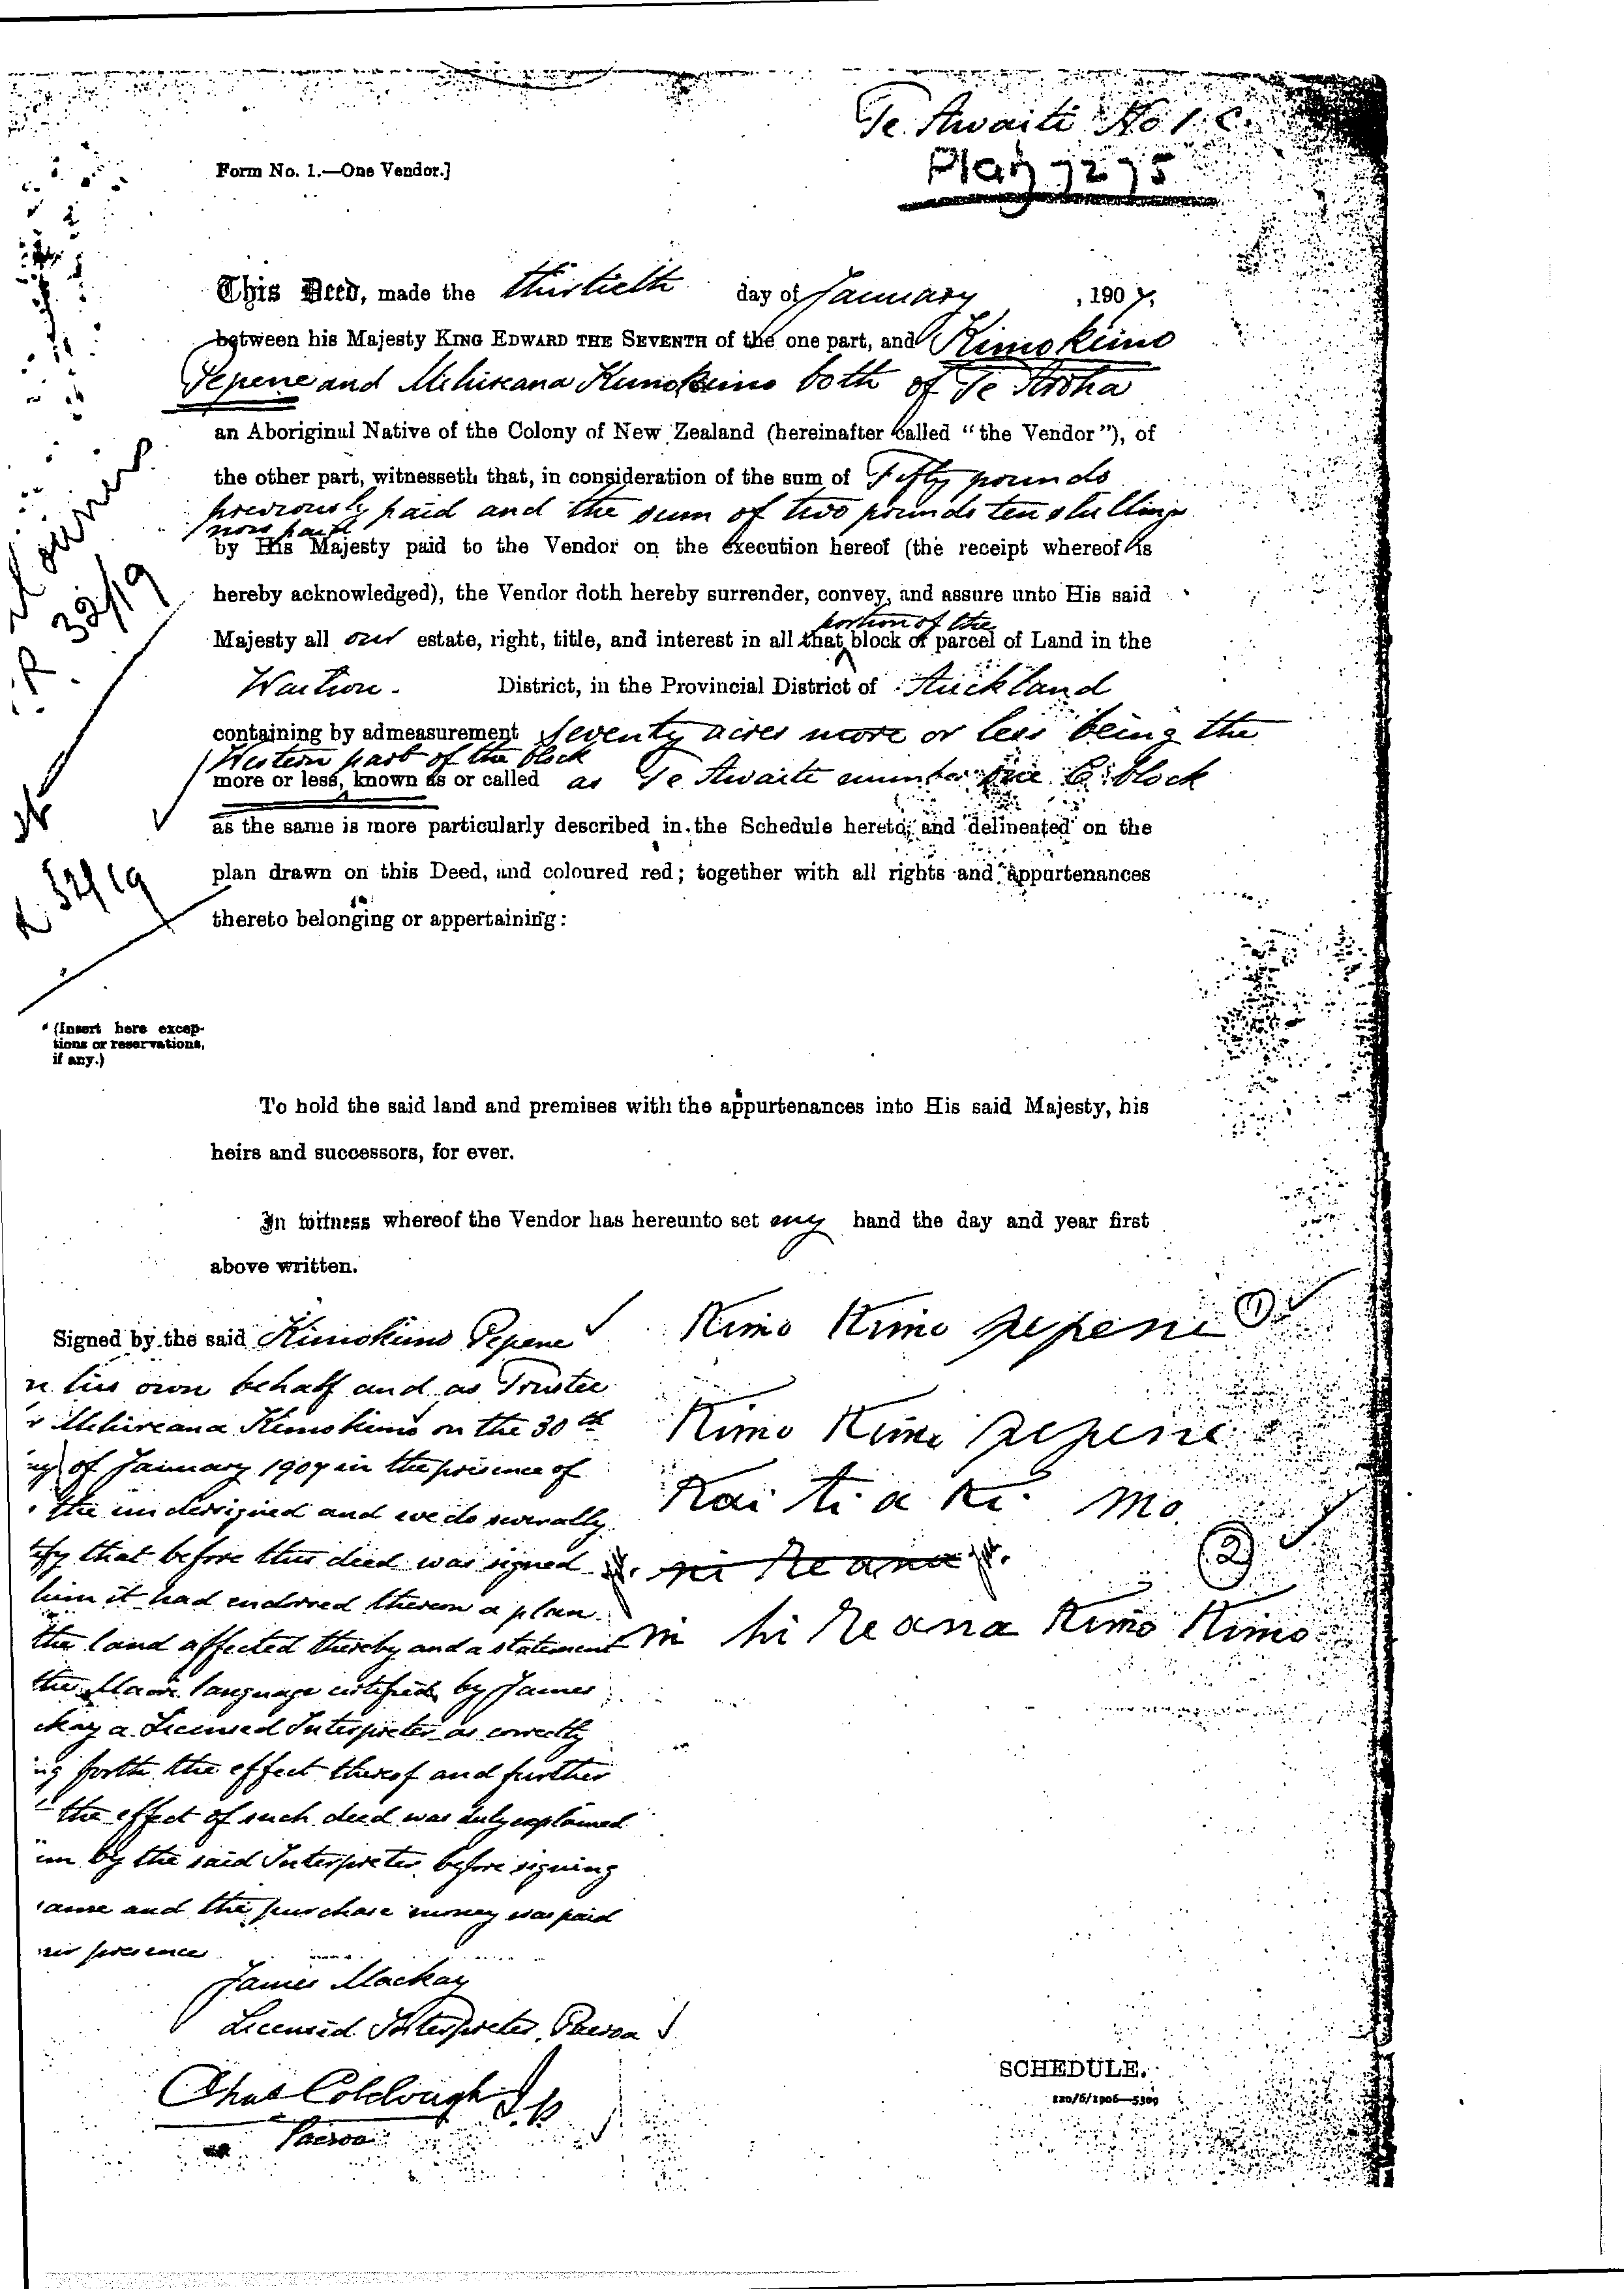 Te Awaiti No 1. C.
Plan 7275
Form No. 1.—One Vendor.]
This Deed, made the thirtieth day of January , 1907,
between his Majesty KING EDWARD THE SEVENTH of the one part, and Kimokimo
Pepene and Mihireana Kimokimo both of Te Aroha
an Aboriginal Native of the Colony of New Zealand (hereinafter called "the Vendor"), of
the other part, witnesseth that, in consideration of the sum of Fifty pounds
previously paid and the sum of two pounds ten shillings
now paid
by His Majesty paid to the Vendor on the execution hereof (the receipt whereof is
hereby acknowledged), the Vendor doth hereby surrender, convey, and assure unto His said
portion of the
Majesty all our estate, right, title, and interest in all that block or parcel of Land in the
District, in the Provincial District of Auckland
containing by admeasurement Seventy acres more or less being the
Western part of the block
more or less, known as or called as Te Awaiti number one C. block
as the same is more particularly described in the Schedule hereto, and delineated on the
plan drawn on this Deed, and coloured red; together with all rights and appurtenances
thereto belonging or appertaining:
32/19
32/19
* (Insert here excep-
tions or reservations,
if any.)
To hold the said land and premises with the appurtenances into His said Majesty, his
heirs and successors, for ever.
In witness whereof the Vendor has hereunto set my hand the day and year first
above written.
Signed by the said Kimokimo Pepene
Kimo Kimo pepene ①
his own behalf and as Trustee
Mihireana Kimokimo on the 30th
Kimo Kimo pepene
of January 1907 in the presence of
Kai tia ki mo
the undersigned and we do severally
that before this deed was signed
mi reana
②
him it had endorsed thereon a plan
the land affected thereby and a statement
mi hi reana Kimo Kimo
the Maori language certified by James
a Licensed Interpreter as correctly
forth the effect thereof and further
the effect of such deed was duly explained
by the said Interpreter before signing
and the purchase money was paid
presence
James Mackay
Licensed Interpreter, Paeroa
Chas Colclough J.P.
Paeroa
SCHEDULE.
120/6/1906—5309